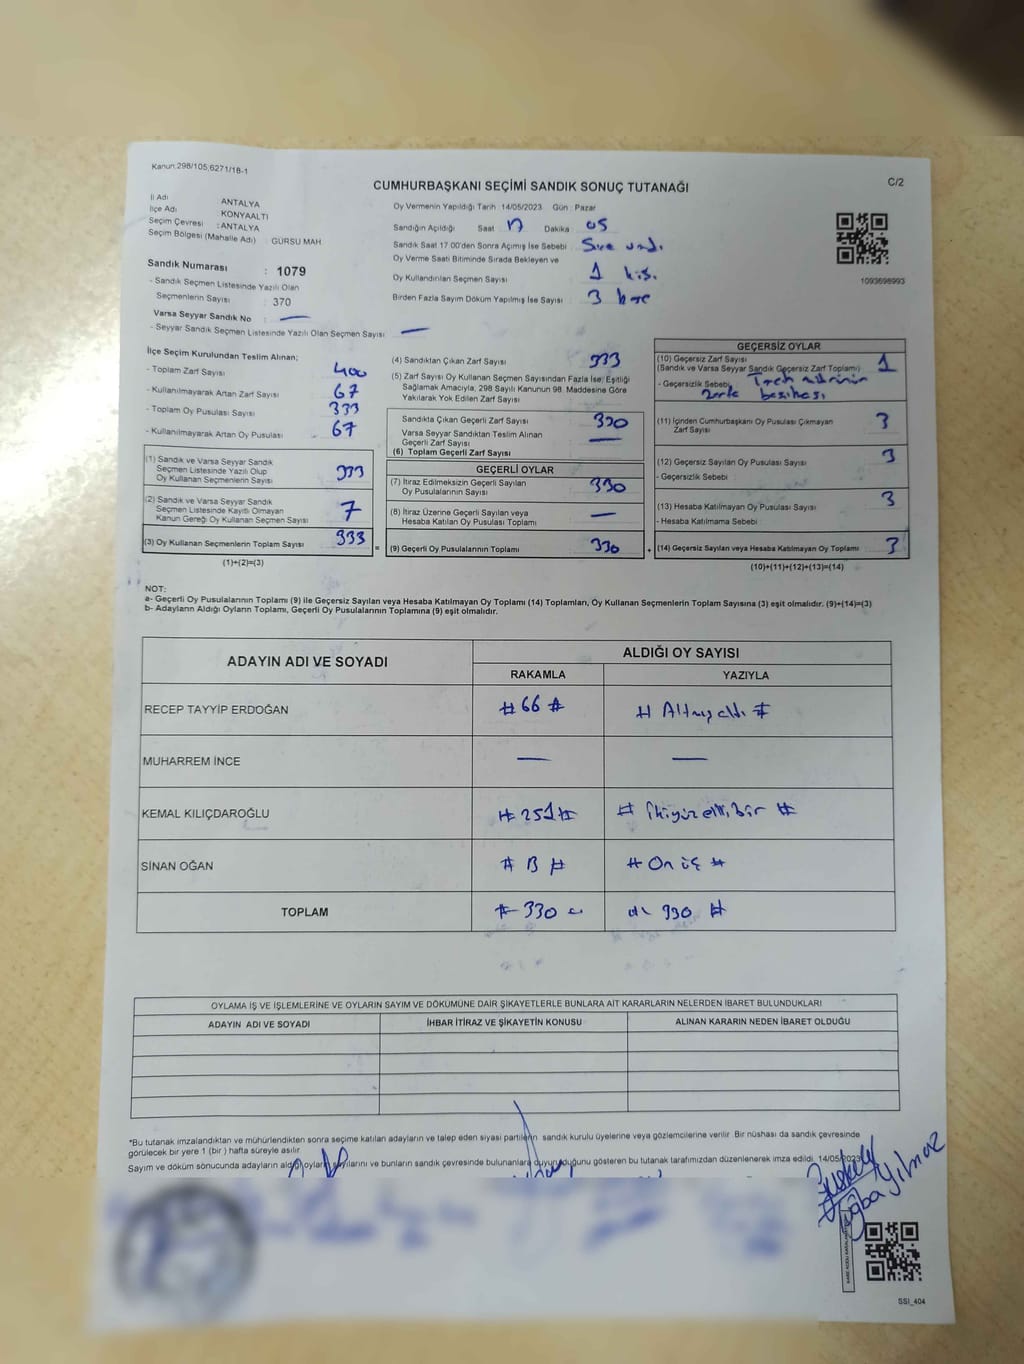 Kanun:298/105,6271/18-1
CUMHURBAŞKANI SEÇİMİ SANDIK SONUÇ TUTANAĞI
C/2
İl Adı ANTALYA
İlçe Adı KONYAALTI
Seçim Çevresi : ANTALYA
Seçim Bölgesi (Mahalle Adı) : GÜRSU MAH.
Sandık Numarası : 1079
- Sandık Seçmen Listesinde Yazılı Olan
Seçmenlerin Sayısı : 370
Varsa Seyyar Sandık No : —
- Seyyar Sandık Seçmen Listesinde Yazılı Olan Seçmen Sayısı : —
Oy Vermenin Yapıldığı Tarih : 14/05/2023 Gün : Pazar
Sandığın Açıldığı Saat 17 Dakika 05
Sandık Saat 17.00'den Sonra Açılmış İse Sebebi : Sıra vardı.
Oy Verme Saati Bitiminde Sırada Bekleyen ve
Oy Kullandırılan Seçmen Sayısı : 1 kiş.
Birden Fazla Sayım Döküm Yapılmış İse Sayısı : 3 kere
1093698993
İlçe Seçim Kurulundan Teslim Alınan;
- Toplam Zarf Sayısı : 400
- Kullanılmayarak Artan Zarf Sayısı : 67
- Toplam Oy Pusulası Sayısı : 333
- Kullanılmayarak Artan Oy Pusulası : 67
(1) Sandık ve Varsa Seyyar Sandık
Seçmen Listesinde Yazılı Olup
Oy Kullanan Seçmenlerin Sayısı : 333
(2) Sandık ve Varsa Seyyar Sandık
Seçmen Listesinde Kayıtlı Olmayan
Kanun Gereği Oy Kullanan Seçmen Sayısı : 7
(3) Oy Kullanan Seçmenlerin Toplam Sayısı : 333
(1)+(2)=(3)
(4) Sandıktan Çıkan Zarf Sayısı : 333
(5) Zarf Sayısı Oy Kullanan Seçmen Sayısından Fazla İse; Eşitliği
Sağlamak Amacıyla, 298 Sayılı Kanunun 98. Maddesine Göre
Yakılarak Yok Edilen Zarf Sayısı :
Sandıkta Çıkan Geçerli Zarf Sayısı : 330
Varsa Seyyar Sandıktan Teslim Alınan
Geçerli Zarf Sayısı : —
(6) Toplam Geçerli Zarf Sayısı :
GEÇERLİ OYLAR
(7) İtiraz Edilmeksizin Geçerli Sayılan
Oy Pusulalarının Sayısı : 330
(8) İtiraz Üzerine Geçerli Sayılan veya
Hesaba Katılan Oy Pusulası Toplamı : —
= (9) Geçerli Oy Pusulalarının Toplamı : 330
GEÇERSİZ OYLAR
(10) Geçersiz Zarf Sayısı : 1
(Sandık ve Varsa Seyyar Sandık Geçersiz Zarf Toplamı)
- Geçersizlik Sebebi :
(11) İçinden Cumhurbaşkanı Oy Pusulası Çıkmayan
Zarf Sayısı : 3
(12) Geçersiz Sayılan Oy Pusulası Sayısı : 3
- Geçersizlik Sebebi :
(13) Hesaba Katılmayan Oy Pusulası Sayısı : 3
- Hesaba Katılmama Sebebi :
+ (14) Geçersiz Sayılan veya Hesaba Katılmayan Oy Toplamı : 3
(10)+(11)+(12)+(13)=(14)
NOT:
a- Geçerli Oy Pusulalarının Toplamı (9) ile Geçersiz Sayılan veya Hesaba Katılmayan Oy Toplamı (14) Toplamları, Oy Kullanan Seçmenlerin Toplam Sayısına (3) eşit olmalıdır. (9)+(14)=(3)
b- Adayların Aldığı Oyların Toplamı, Geçerli Oy Pusulalarının Toplamına (9) eşit olmalıdır.
ADAYIN ADI VE SOYADI
ALDIĞI OY SAYISI
RAKAMLA YAZIYLA
RECEP TAYYİP ERDOĞAN # 66 # # Altmışaltı #
MUHARREM İNCE — —
KEMAL KILIÇDAROĞLU # 251 # # İkiyüzellibir #
SİNAN OĞAN # 13 # # On üç #
TOPLAM # 330 # # 330 #
OYLAMA İŞ VE İŞLEMLERİNE VE OYLARIN SAYIM VE DÖKÜMÜNE DAİR ŞİKAYETLERLE BUNLARA AİT KARARLARIN NELERDEN İBARET BULUNDUKLARI
ADAYIN ADI VE SOYADI İHBAR İTİRAZ VE ŞİKAYETİN KONUSU ALINAN KARARIN NEDEN İBARET OLDUĞU
*Bu tutanak imzalandıktan ve mühürlendikten sonra seçime katılan adayların ve talep eden siyasi partilerin sandık kurulu üyelerine veya gözlemcilerine verilir. Bir nüshası da sandık çevresinde
görülecek bir yere 1 (bir) hafta süreyle asılır.
Sayım ve döküm sonucunda adayların aldığı oyların sayılarını ve bunların sandık çevresinde bulunanlara duyurulduğunu gösteren bu tutanak tarafımızdan düzenlenerek imza edildi. 14/05/2023
Tuğba Yılmaz
SSI_404